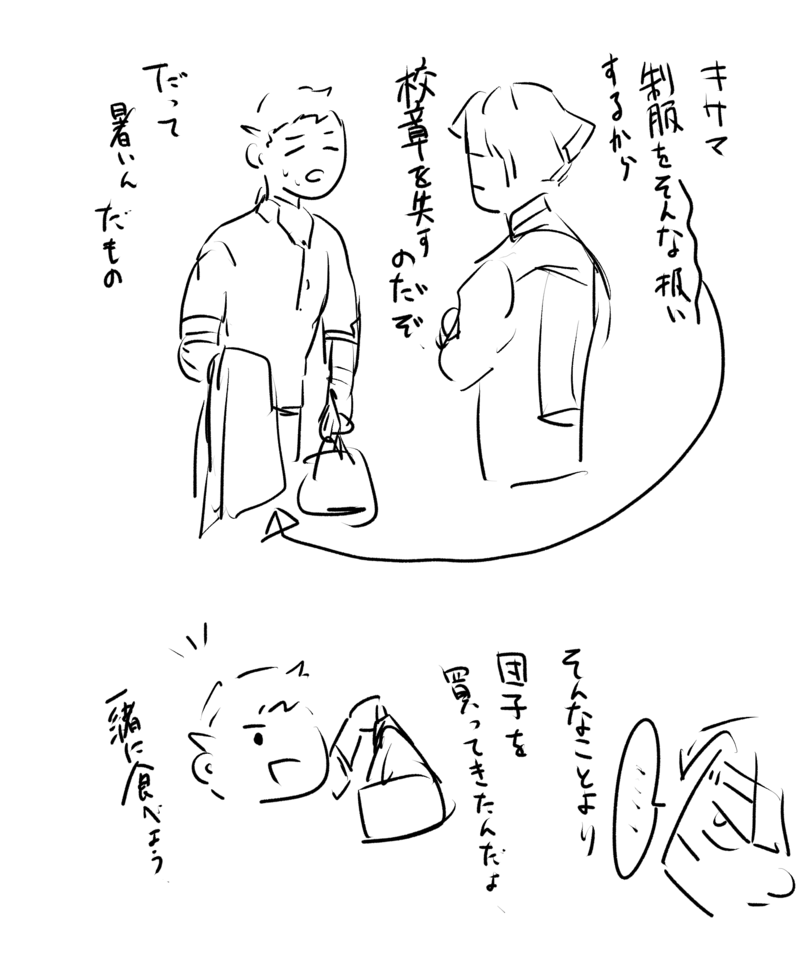 キサマ
制服をそんな扱い
するから
校章を失す
のだぞ
だって
暑いん
だもの
そんなことより
団子を
買ってきたんだよ
一緒に食べよう
……